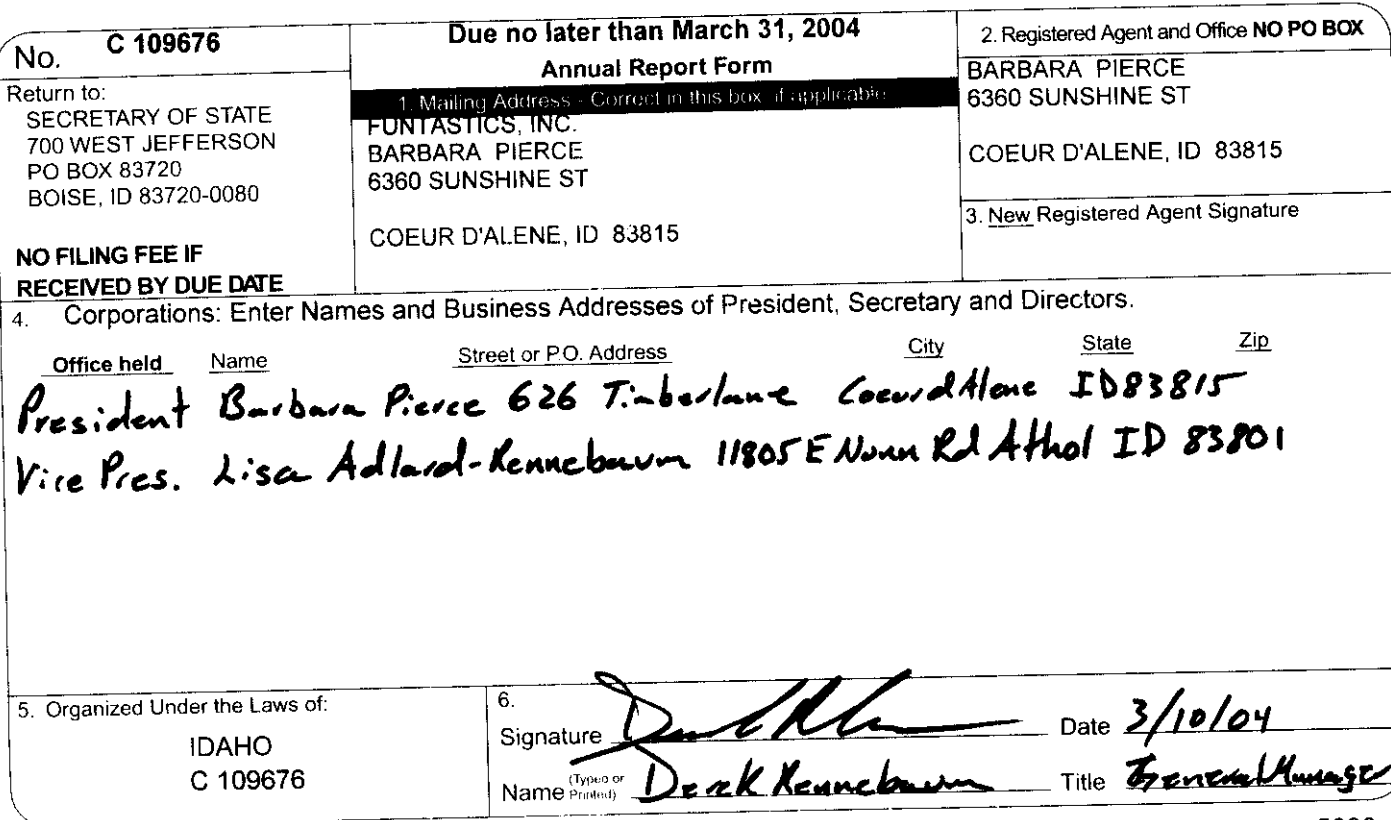 No. C 109676
Return to:
SECRETARY OF STATE
700 WEST JEFFERSON
PO BOX 83720
BOISE, ID 83720-0080
NO FILING FEE IF
RECEIVED BY DUE DATE
Due no later than March 31, 2004
Annual Report Form
1. Mailing Address - Correct in this box if applicable
FUNTASTICS, INC.
BARBARA PIERCE
6360 SUNSHINE ST
COEUR D'ALENE, ID 83815
2. Registered Agent and Office NO PO BOX
BARBARA PIERCE
6360 SUNSHINE ST
COEUR D'ALENE, ID 83815
3. New Registered Agent Signature
4. Corporations: Enter Names and Business Addresses of President, Secretary and Directors.
Office held Name Street or P.O. Address City State Zip
President Barbara Pierce 626 Timberlane Coeur d Alene ID 83815
Vice Pres. Lisa Adlard-Rennebaum 11805 E Nunn Rd Athol ID 83801
5. Organized Under the Laws of:
IDAHO
C 109676
6.
Signature Date 3/10/04
Name (Typed or Printed) Derek Rennebaum Title General Manager